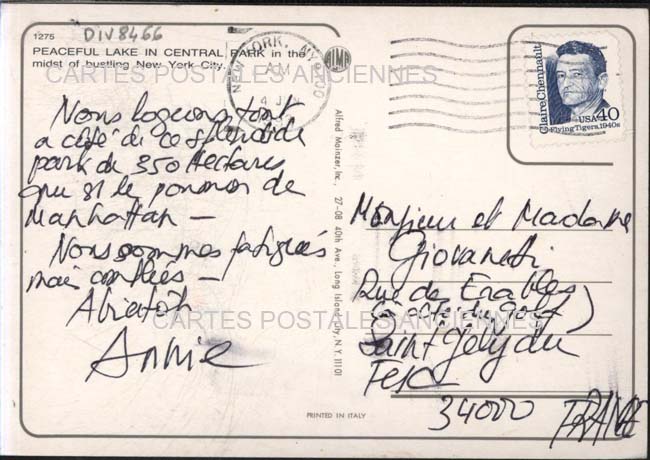 DIV8466
1275
PEACEFUL LAKE IN CENTRAL PARK in the
midst of bustling New York City.
CARTES POSTALES ANCIENNES
Nous logeons tout
a coté de ce splendide
park de 350 Hectares
qui est le poumon de
Manhattan –
Nous sommes fatiguées
mais comblées –
A bientôt
Annie
NEW YORK, NY
AM
4
MWM
Alfred Mainzer, Inc., 27-08 40th Ave., Long Island City, N.Y. 11101
Claire Chennault
Flying Tigers, 1940s
USA 40
Monsieur et Madame
Giovaneti
Rue des Erables
(a côté du golf)
Saint Gély du
Fesc
34000 FRANCE
CARTES POSTALES ANCIENNES
PRINTED IN ITALY